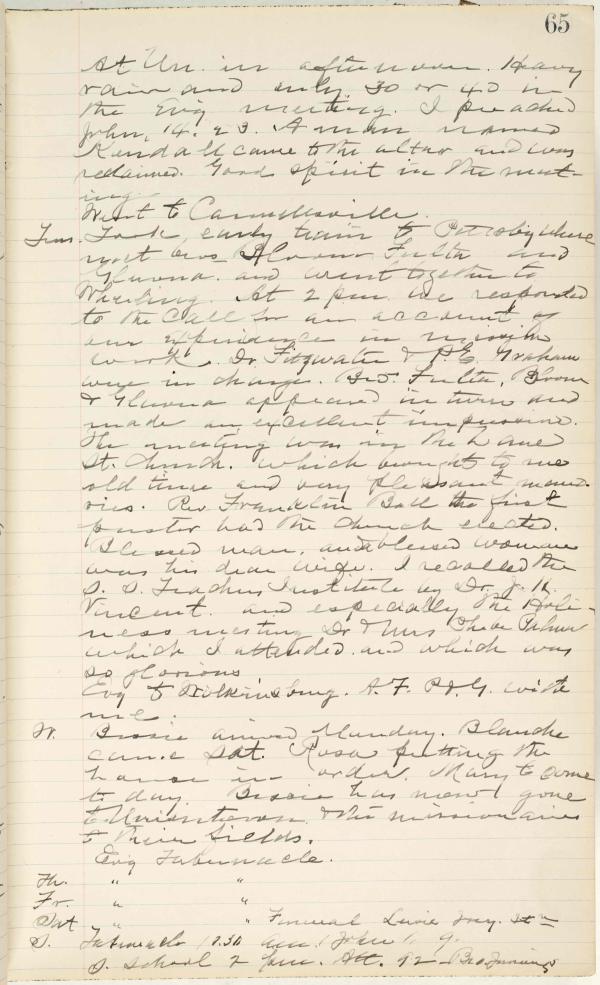 65
At Un. in afternoon. Heavy
rain and only 30 or 40 in
the Evg meeting. I preached
John, 14. 23. A man named
Kendall came to the altar and was
reclaimed. Good spirit in the meet-
ing.
Went to
Tues. Took early train to where
met bros Bloom Fulta and
and went together to
At 2 pm we responded
to the Call for an account of
our experience in mission
work. Dr Fitzwater & P.E. Graham
were in charge. Bro. Fulta, Bloom
& appeared in turn and
made an excellent impression.
The meeting was in the
St. Church. which brought to me
old time and very pleasant memo-
ries. Rev Franklin Ball the first
pastor had the church erected.
Blessed man, and blessed woman
was his dear wife. I recalled the
S. S. Teachers Institute by Dr. J. H.
Vincent. and especially the Holi-
ness meeting Dr & Mrs Palmer
which I attended and which was
so glorious
Evg to Wilkinsburg. with
me.
W. Bessie arrived Monday. Blanche
came Sat. Rosa putting the
house in order. Mary to come
to day. Bessie has now gone
to Uniontown & the missionaries
to their fields.
Evg Tabernacle.
Th. " "
Fr. " "
Sat " " Funeral
S. Tabernacle 10.30 am. John 1. 9.
S. School 2 pm. Att. 92